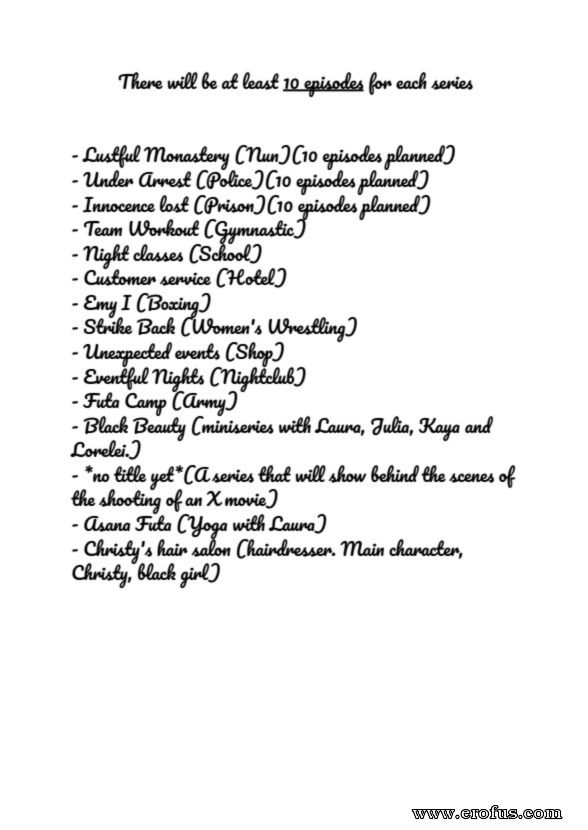 There will be at least 10 episodes for each series
- Lustful Monastery (Nun)(10 episodes planned)
- Under Arrest (Police)(10 episodes planned)
- Innocence lost (Prison)(10 episodes planned)
- Team Workout (Gymnastic)
- Night classes (School)
- Customer service (Hotel)
- Emy I (Boxing)
- Strike Back (Women's Wrestling)
- Unexpected events (Shop)
- Eventful Nights (Nightclub)
- Futa Camp (Army)
- Black Beauty (miniseries with Laura, Julia, Kaya and
Lorelei.)
- *no title yet*(A series that will show behind the scenes of
the shooting of an X movie)
- Asana Futa (Yoga with Laura)
- Christy's hair salon (hairdresser. Main character,
Christy, black girl)
www.erofus.com